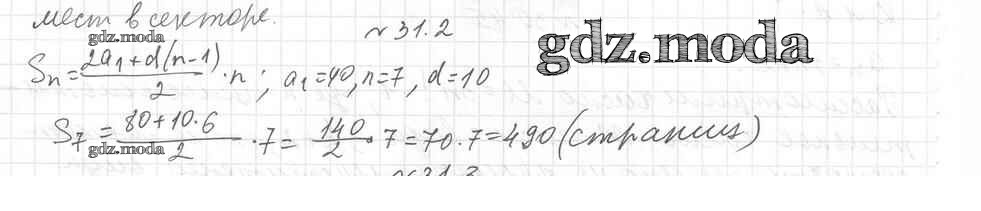 мест в секторе.
№31.2
gdz.moda
gdz.moda
Sn = (2a₁+d(n-1))/2 · n ; a₁=40, n=7, d=10
S₇ = (80+10·6)/2 · 7 = 140/2 · 7 = 70·7 = 490 (страниц)
gdz.moda